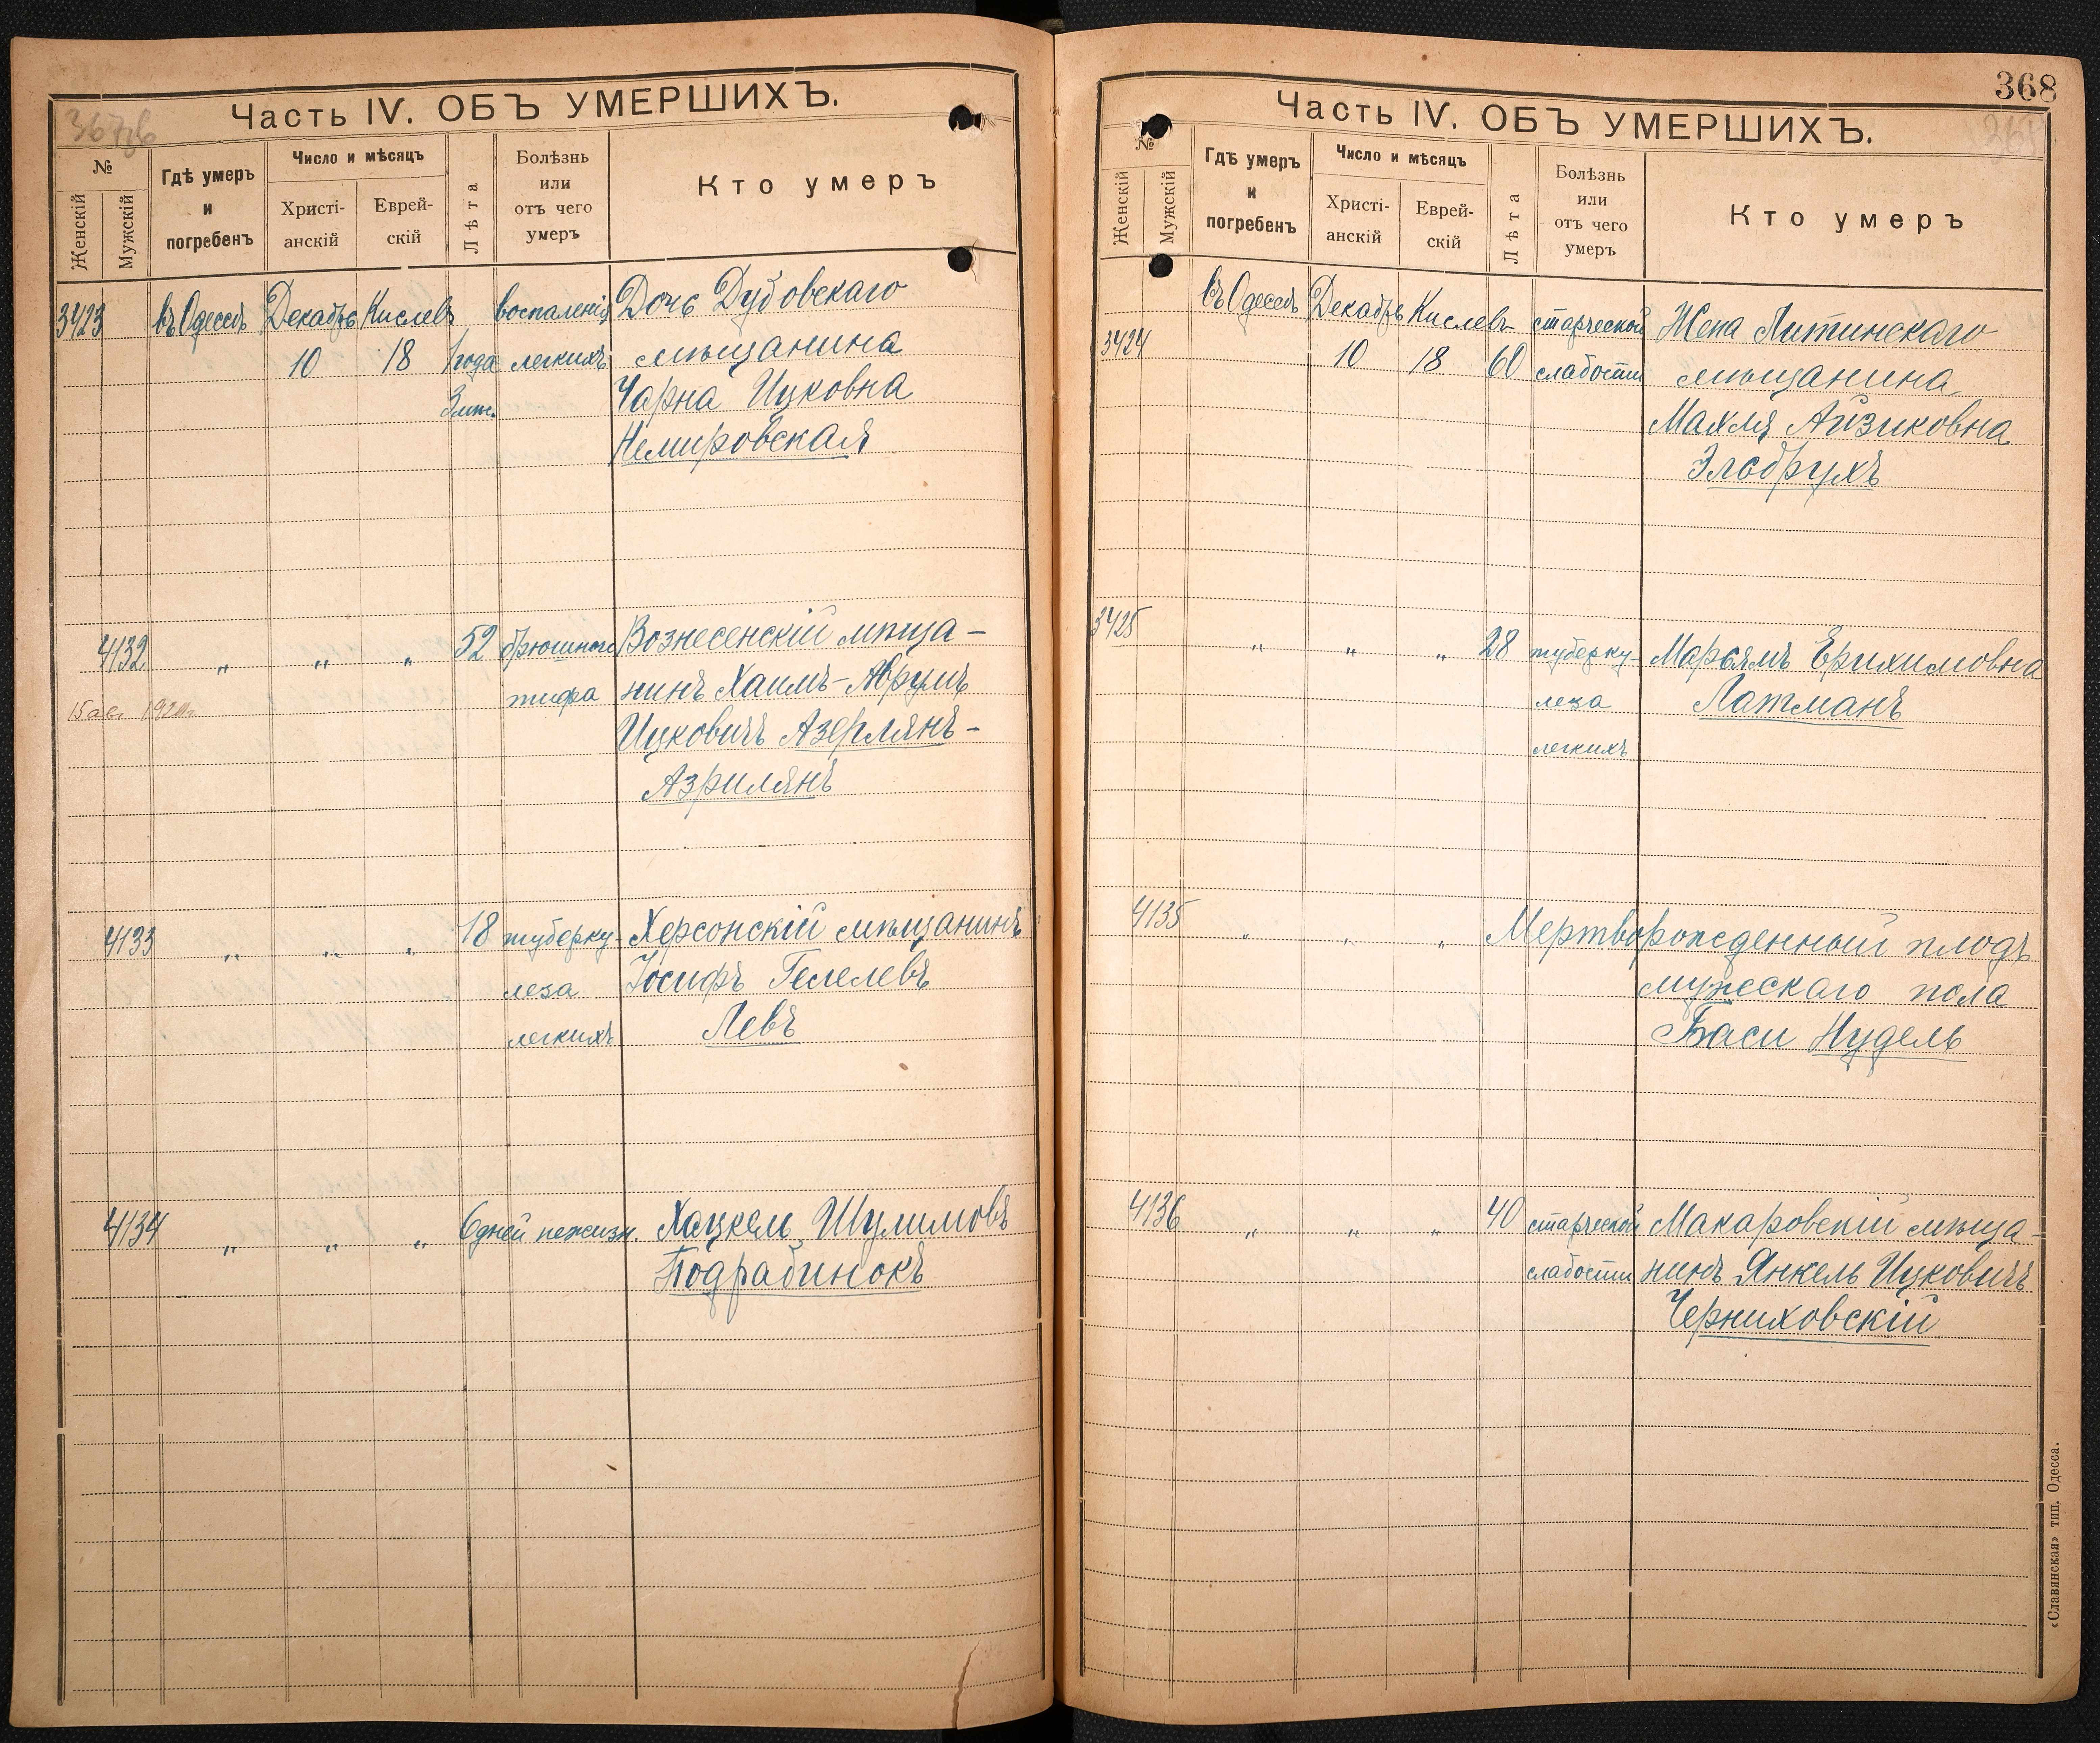 Часть IV. ОБЪ УМЕРШИХЪ.
№
Женскій
Мужскій
Гдѣ умеръ
и
погребенъ
Число и мѣсяцъ
Христі-
анскій
Еврей-
скій
Лѣта
Болѣзнь
или
отъ чего
умеръ
Кто умеръ
3423 въ Одессѣ Декабрь Кислевъ воспаленія Дочь Дубовскаго
10 18 1 года легкихъ мѣщанина
3 мѣс. Чарна Ицковна
Немировская
4132 „ „ „ 52 брюшного Вознесенскій мѣща-
15 авг тифа нинъ Хаимъ-Аврумъ
Ицковичъ Азерлянъ-
Азрилянъ
4133 „ „ „ 18 туберку- Херсонскій мѣщанинъ
леза Іосифъ Гелелевъ
легкихъ Левъ
4134 „ „ „ 6 дней нежизн. Хацкель Шулимовъ
Подрабинокъ
368
Часть IV. ОБЪ УМЕРШИХЪ.
№
Женскій
Мужскій
Гдѣ умеръ
и
погребенъ
Число и мѣсяцъ
Христі-
анскій
Еврей-
скій
Лѣта
Болѣзнь
или
отъ чего
умеръ
Кто умеръ
въ Одессѣ Декабрь Кислевъ старческой Жена Литинскаго
3424 10 18 60 слабости мѣщанина
Махля Айзиковна
Эльбрухъ
3425 „ „ „ 28 туберку- Марьямъ Ерихимовна
леза Латманъ
легкихъ
4135 „ „ „ Мертворожденный плодъ
мужескаго пола
Баси Нудель
4136 „ „ „ 40 старческой Макаровскій мѣща-
слабости нинъ Янкель Ицковичъ
Черниховскій
«Славянская» тип. Одесса.